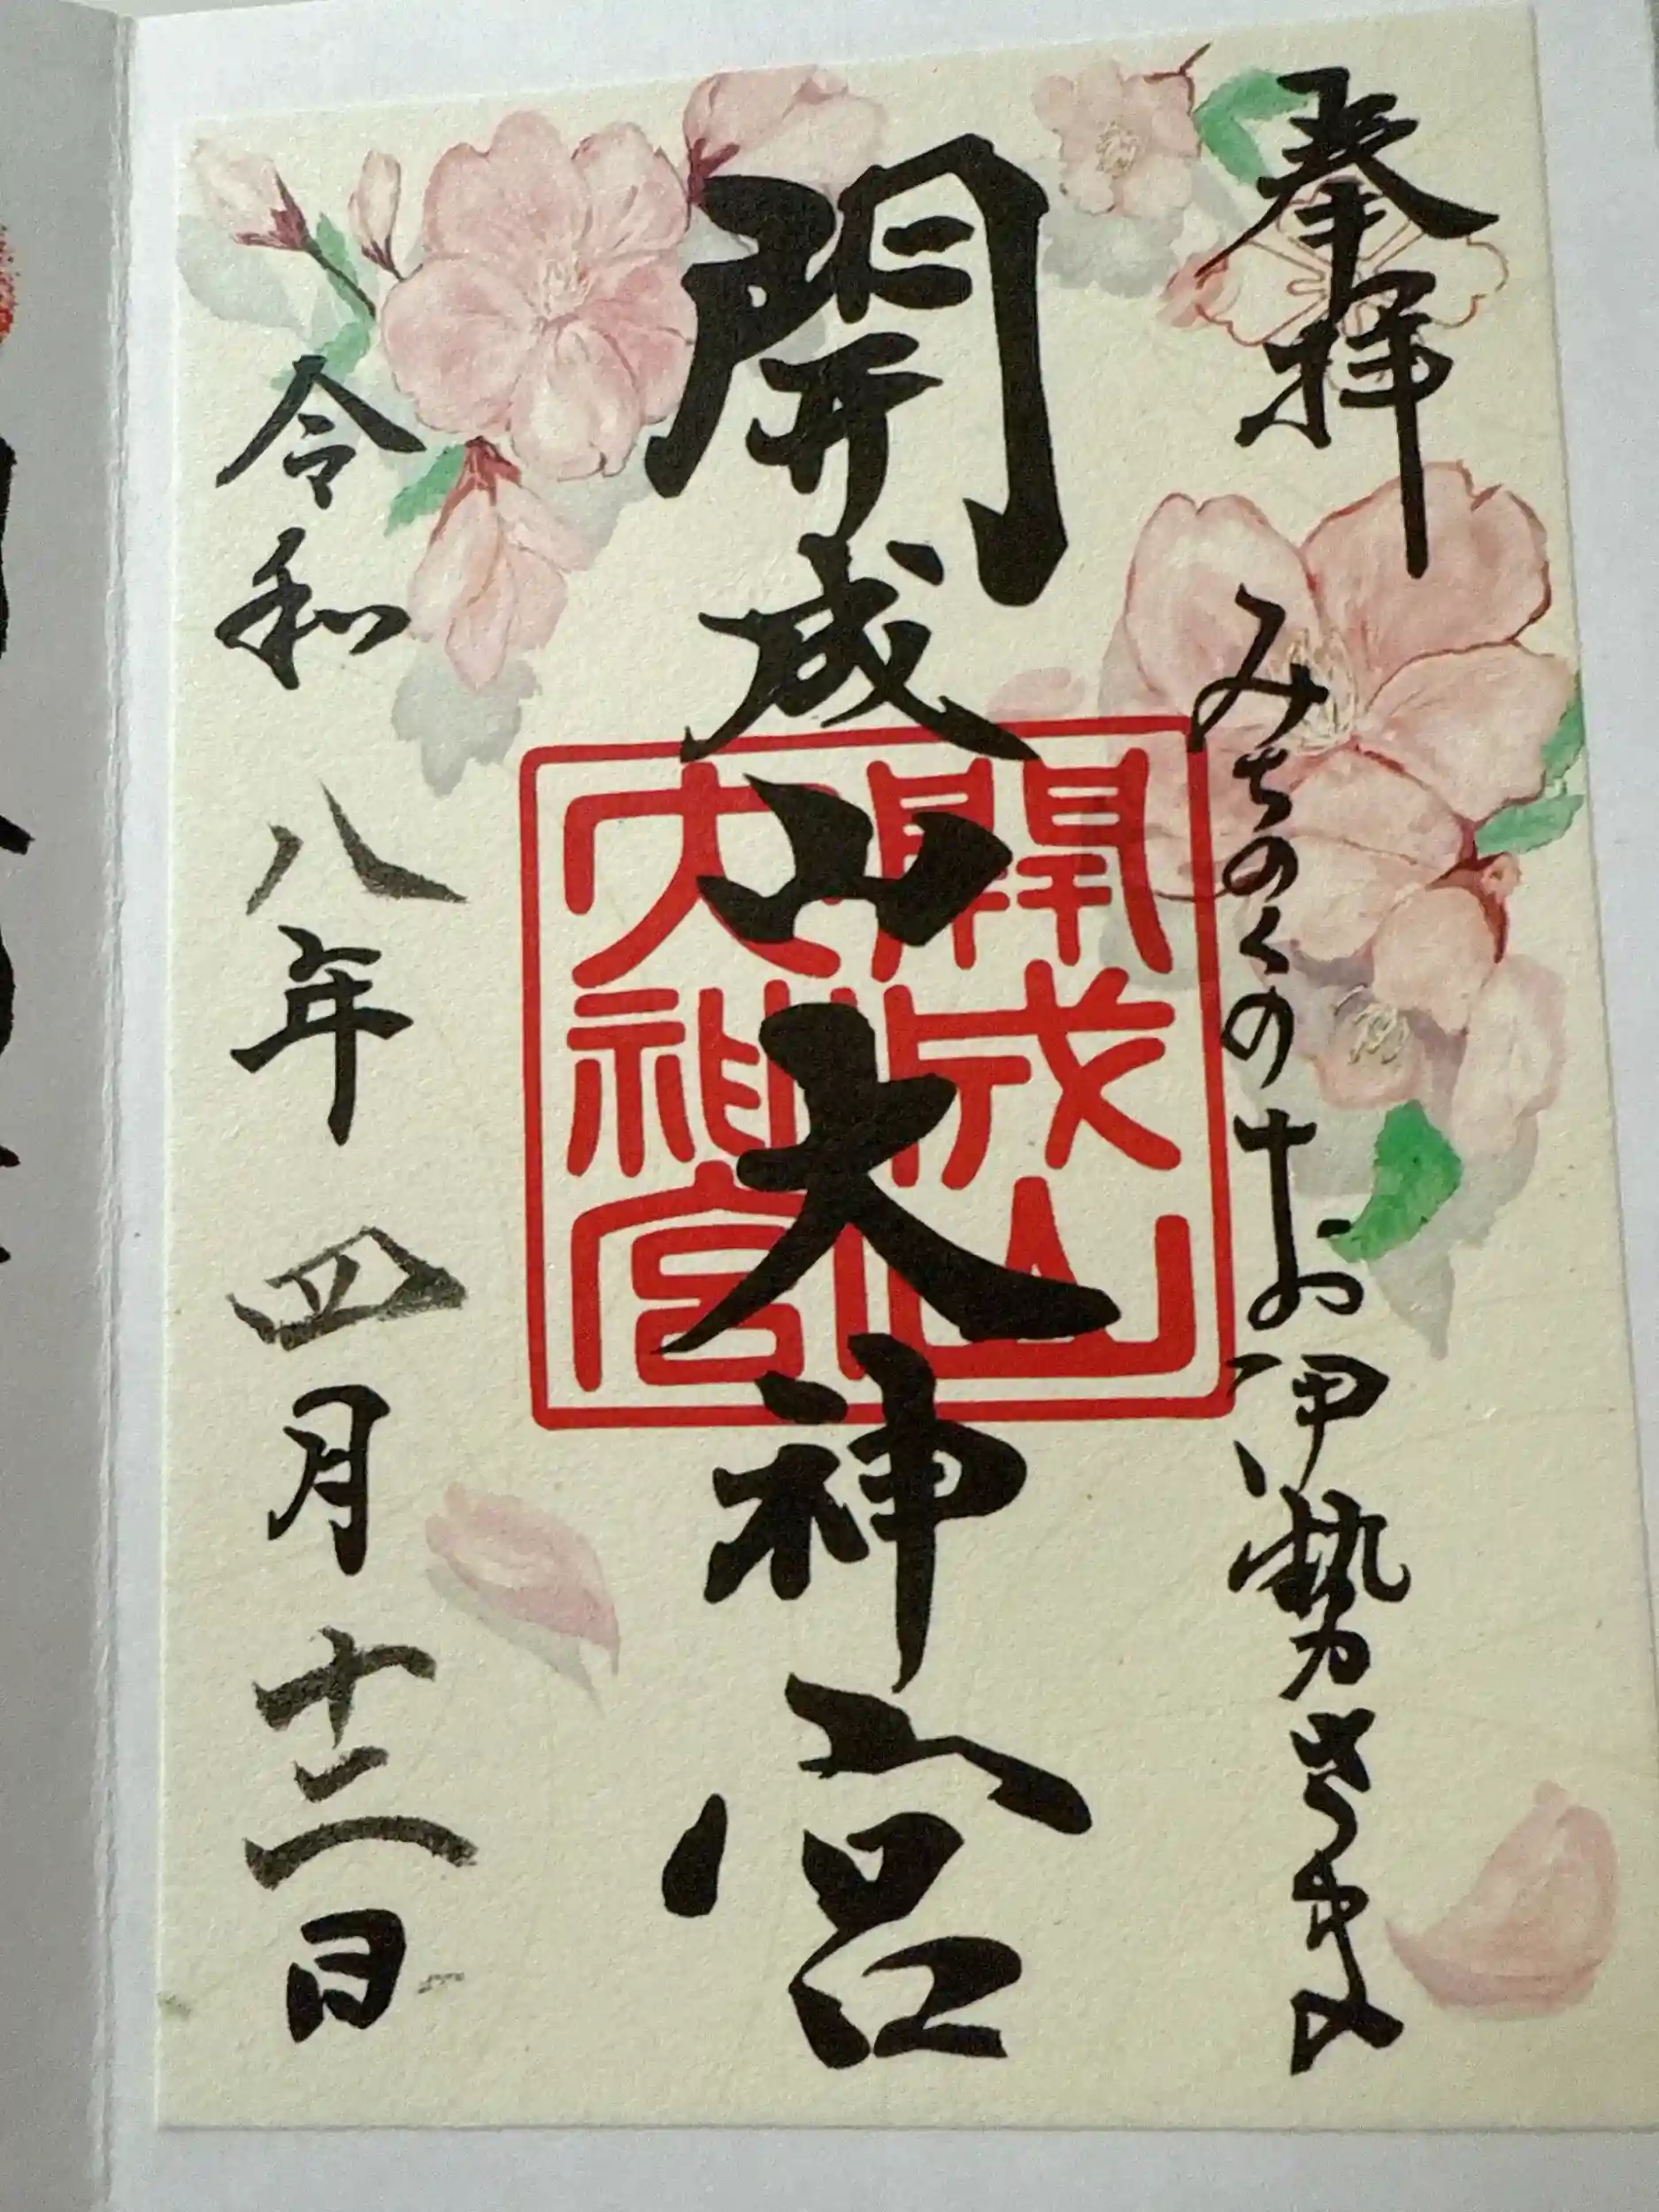 奉拝
みちのくのおお伊勢さま
開成山大神宮
開成山
大神宮
令和八年四月十二日